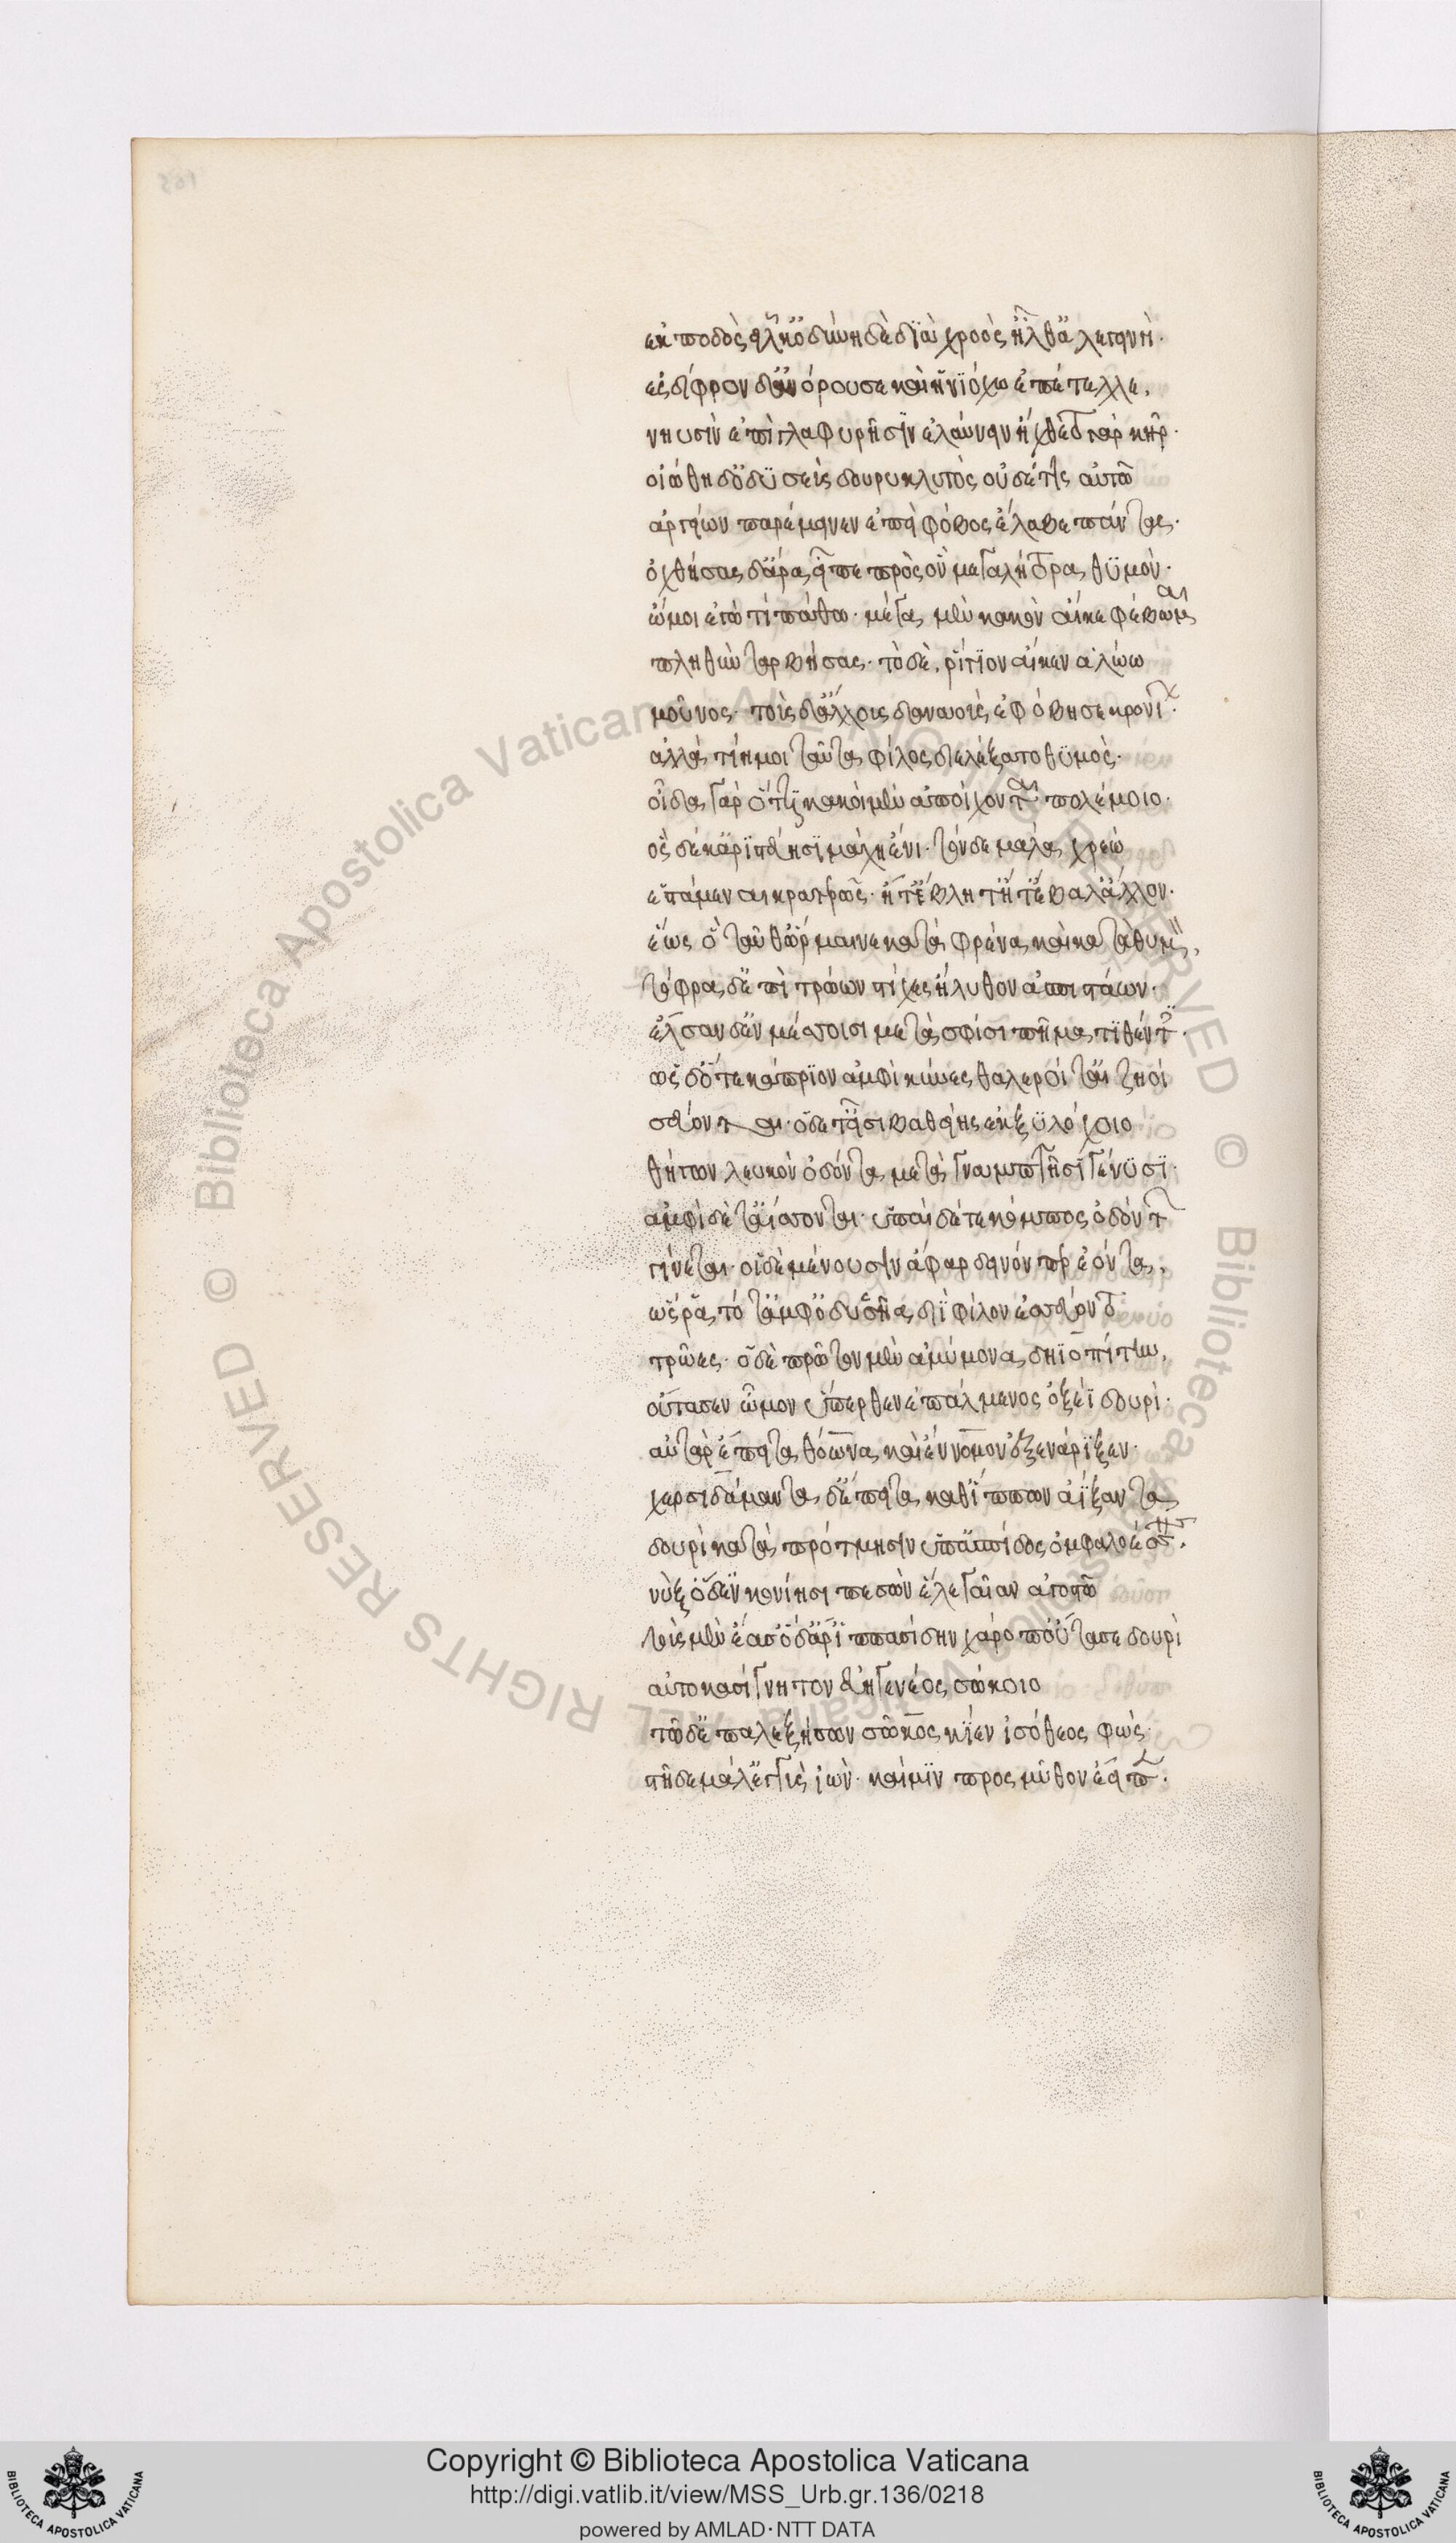 ἐκ ποδὸς εἷλκ' ὀδύνη δὲ διὰ χροὸς ἦλθ' ἀλεγεινή·
ἐς δίφρον δ' ἀνόρουσε καὶ ἡνιόχω ἐπέτελλε,
νηυσὶν ἐπὶ γλαφυρῆσιν ἐλαύνειν ἤχθετο γὰρ κῆρ·
οἰώθη δ' ὀδυσεὺς δουρικλυτὸς οὐδέ τις αὐτῶ
ἀργείων παρέμεινεν ἐπεὶ φόβος ἔλαβε πάντας·
ὀχθήσας δ' ἄρα εἶπε πρὸς ὃν μεγαλήτορα θυμόν·
ὤμοι ἐγὼ τί πάθω· μέγα μὲν κακὸν αἴκε φέβωμαι
πληθὺν ταρβήσας· τὸ δὲ ῥίγιον αἴκεν ἁλώω
μοῦνος· τοὺς δ' ἄλλους δαναοὺς ἐφόβησε κρονίων·
ἀλλὰ τίη μοι ταῦτα φίλος διελέξατο θυμός·
οἶδα γὰρ ὅττι κακοὶ μὲν ἀποίχονται πολέμοιο·
ὃς δέ κ' ἀριστεύησι μάχη ἔνι· τὸν δὲ μάλα χρεὼ
ἑστάμεναι κρατερῶς· ἤτ' ἔβλητ' ἤτ' ἔβαλ' ἄλλον·
ἕως ὃ ταῦθ' ὥρμαινε κατὰ φρένα καὶ κατὰ θυμόν,
τόφρα δ' ἐπὶ τρώων στίχες ἤλυθον ἀσπιστάων·
ἔλσαν δ' ἐν μέσοισι μετὰ σφίσι πῆμα τιθέντες·
ὡς δ' ὅτε κάπριον ἀμφὶ κύνες θαλεροί τ' αἰζηοὶ
σεύονται· ὁ δέ τ' εἶσι βαθείης ἐκ ξυλόχοιο
θήγων λευκὸν ὀδόντα μετὰ γναμπτῆσι γένυσι·
ἀμφὶ δέ τ' ἀίσσονται· ὑπαὶ δέ τε κόμπος ὀδόντων
γίνεται· οἱ δὲ μένουσιν ἄφαρ δεινόν περ ἐόντα,
ὥς ῥα τότ' ἀμφ' ὀδυσῆα διὶ φίλον ἐσσεύοντο
τρῶες· ὁ δὲ πρῶτον μὲν ἀμύμονα δηϊοπίτην,
οὔτασεν ὦμον ὕπερθεν ἐπάλμενος ὀξέϊ δουρί·
αὐτὰρ ἔπειτα θόωνα καὶ ἔννομον ἐξενάριξεν·
χερσιδάμαντα δ' ἔπειτα καθ' ἵππων ἀΐξαντα
δουρὶ κατὰ πρότμησιν ὑπ' ἀσπίδος ὀμφαλοέσσης,
νύξ' ὁ δ' ἐν κονίησι πεσὼν ἕλε γαῖαν ἀγοστῶ
τοὺς μὲν ἔασ' ὁ δ' ἄρ' ἱππασίδην χάροπ' οὔτασε δουρὶ
αὐτοκασίγνητον εὐηγενέος σώκοιο
τῶ δ' ἐπαλεξήσων σῶκος κίεν ἰσόθεος φώς·
στῆ δὲ μάλ' ἐγγὺς ἰών· καί μιν πρὸς μῦθον ἔειπε·
Copyright © Biblioteca Apostolica Vaticana
http://digi.vatlib.it/view/MSS_Urb.gr.136/0218
powered by AMLAD·NTT DATA